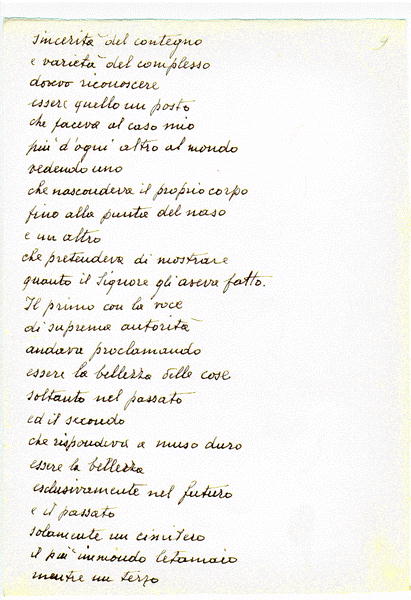 9
sincerità del contegno
e varietà del complesso
dovevo riconoscere
essere quello un posto
che faceva al caso mio
più d'ogni altro al mondo
vedendo uno
che nascondeva il proprio corpo
fino alla punta del naso
e un altro
che pretendeva di mostrare
quanto il Signore gli aveva fatto.
Il primo con la voce
di suprema autorità
andava proclamando
essere la bellezza delle cose
soltanto nel passato
ed il secondo
che rispondeva a muso duro
essere la bellezza
esclusivamente nel futuro
e il passato
solamente un cimitero
il più immondo letamaio
mentre un terzo